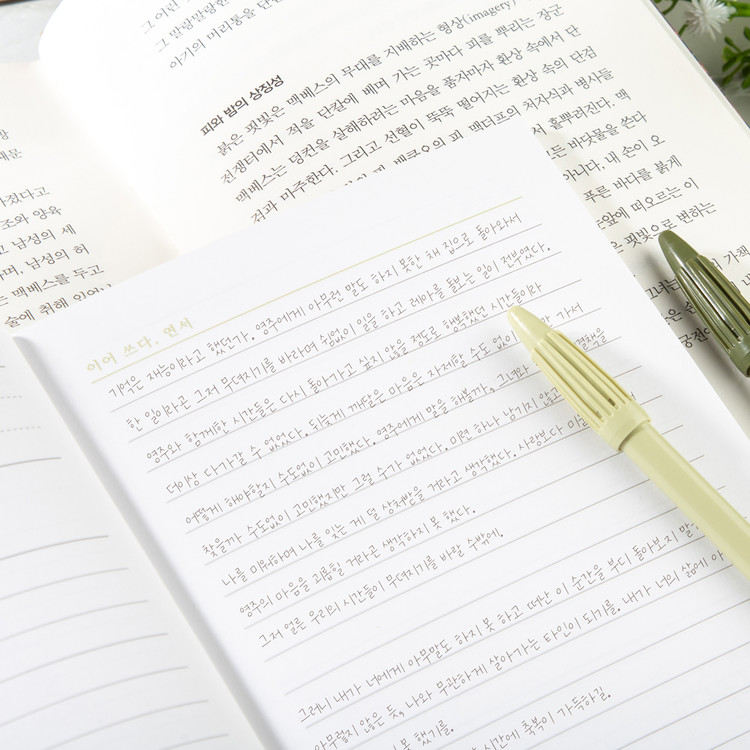 그 말랑말랑한
아기의 머리통을 단
피와 밤의 상징성
붉은 핏빛은 맥베스의 무대를 지배하는 형상(imagery)
전쟁터에서 적을 단칼에 베며 가는 곳마다 피를 뿌리는 장군
맥베스는 덩컨을 살해하려는 마음을 품자마자 환상 속에서 단
검과 미주한다. 그리고 선혈이 뚝뚝 떨어지는 환상 속의 단검
피 맥더프의 처자식과 병사들
서 흩뿌려진다. 맥
든 바닷물을 쓴다
아니다. 내 손이 오
푸른 바다를 붉게
눈앞에 떠오르는 이
핏빛으로 변하는
가졌다고
조와 양육
고 남성의 세
며, 남성의 허
는 맥베스를 두고
술에 취해 있었나
이어 쓰다, 연서
기억은 재능이라고 했던가. 영주에게 아무런 말도 하지 못한 채 집으로 돌아와서
한 일이라곤 그저 무뎌지기를 바라며 쉼없이 일을 하고 레아를 돌보는 일이 전부였다.
영주와 함께한 시간들은 다시 돌아가고 싶지 않을 정도로 행복했던 시간들이라
더이상 다가갈 수 없었다. 뒤늦게 깨달은 마음은 자제할 수도 없이 가서
어떻게 해야할지 수도없이 고민했다. 영주에게 말을 해볼까, 그녀와
찾을까 수도없이 고민했지만 그럴 수가 없었다. 미련 하나 남기지 않고
나를 미워하며 나를 잊는 게 덜 상처받을 거라고 생각했다. 사랑보다
영주의 마음을 괴롭힐 거라곤 생각하지 못 했다.
그저 얼른 우리의 시간들이 무뎌지기를 바랄 수밖에.
그러니 내가 너에게 아무말도 하지 못 하고 떠난 이 순간을 부디 돌아보지 말
아무렇지 않은 듯, 나와 무관하게 살아가는 타인이 되기를. 내가 너의 삶에
지 못 했기를.
시간에 축복이 가득하길.